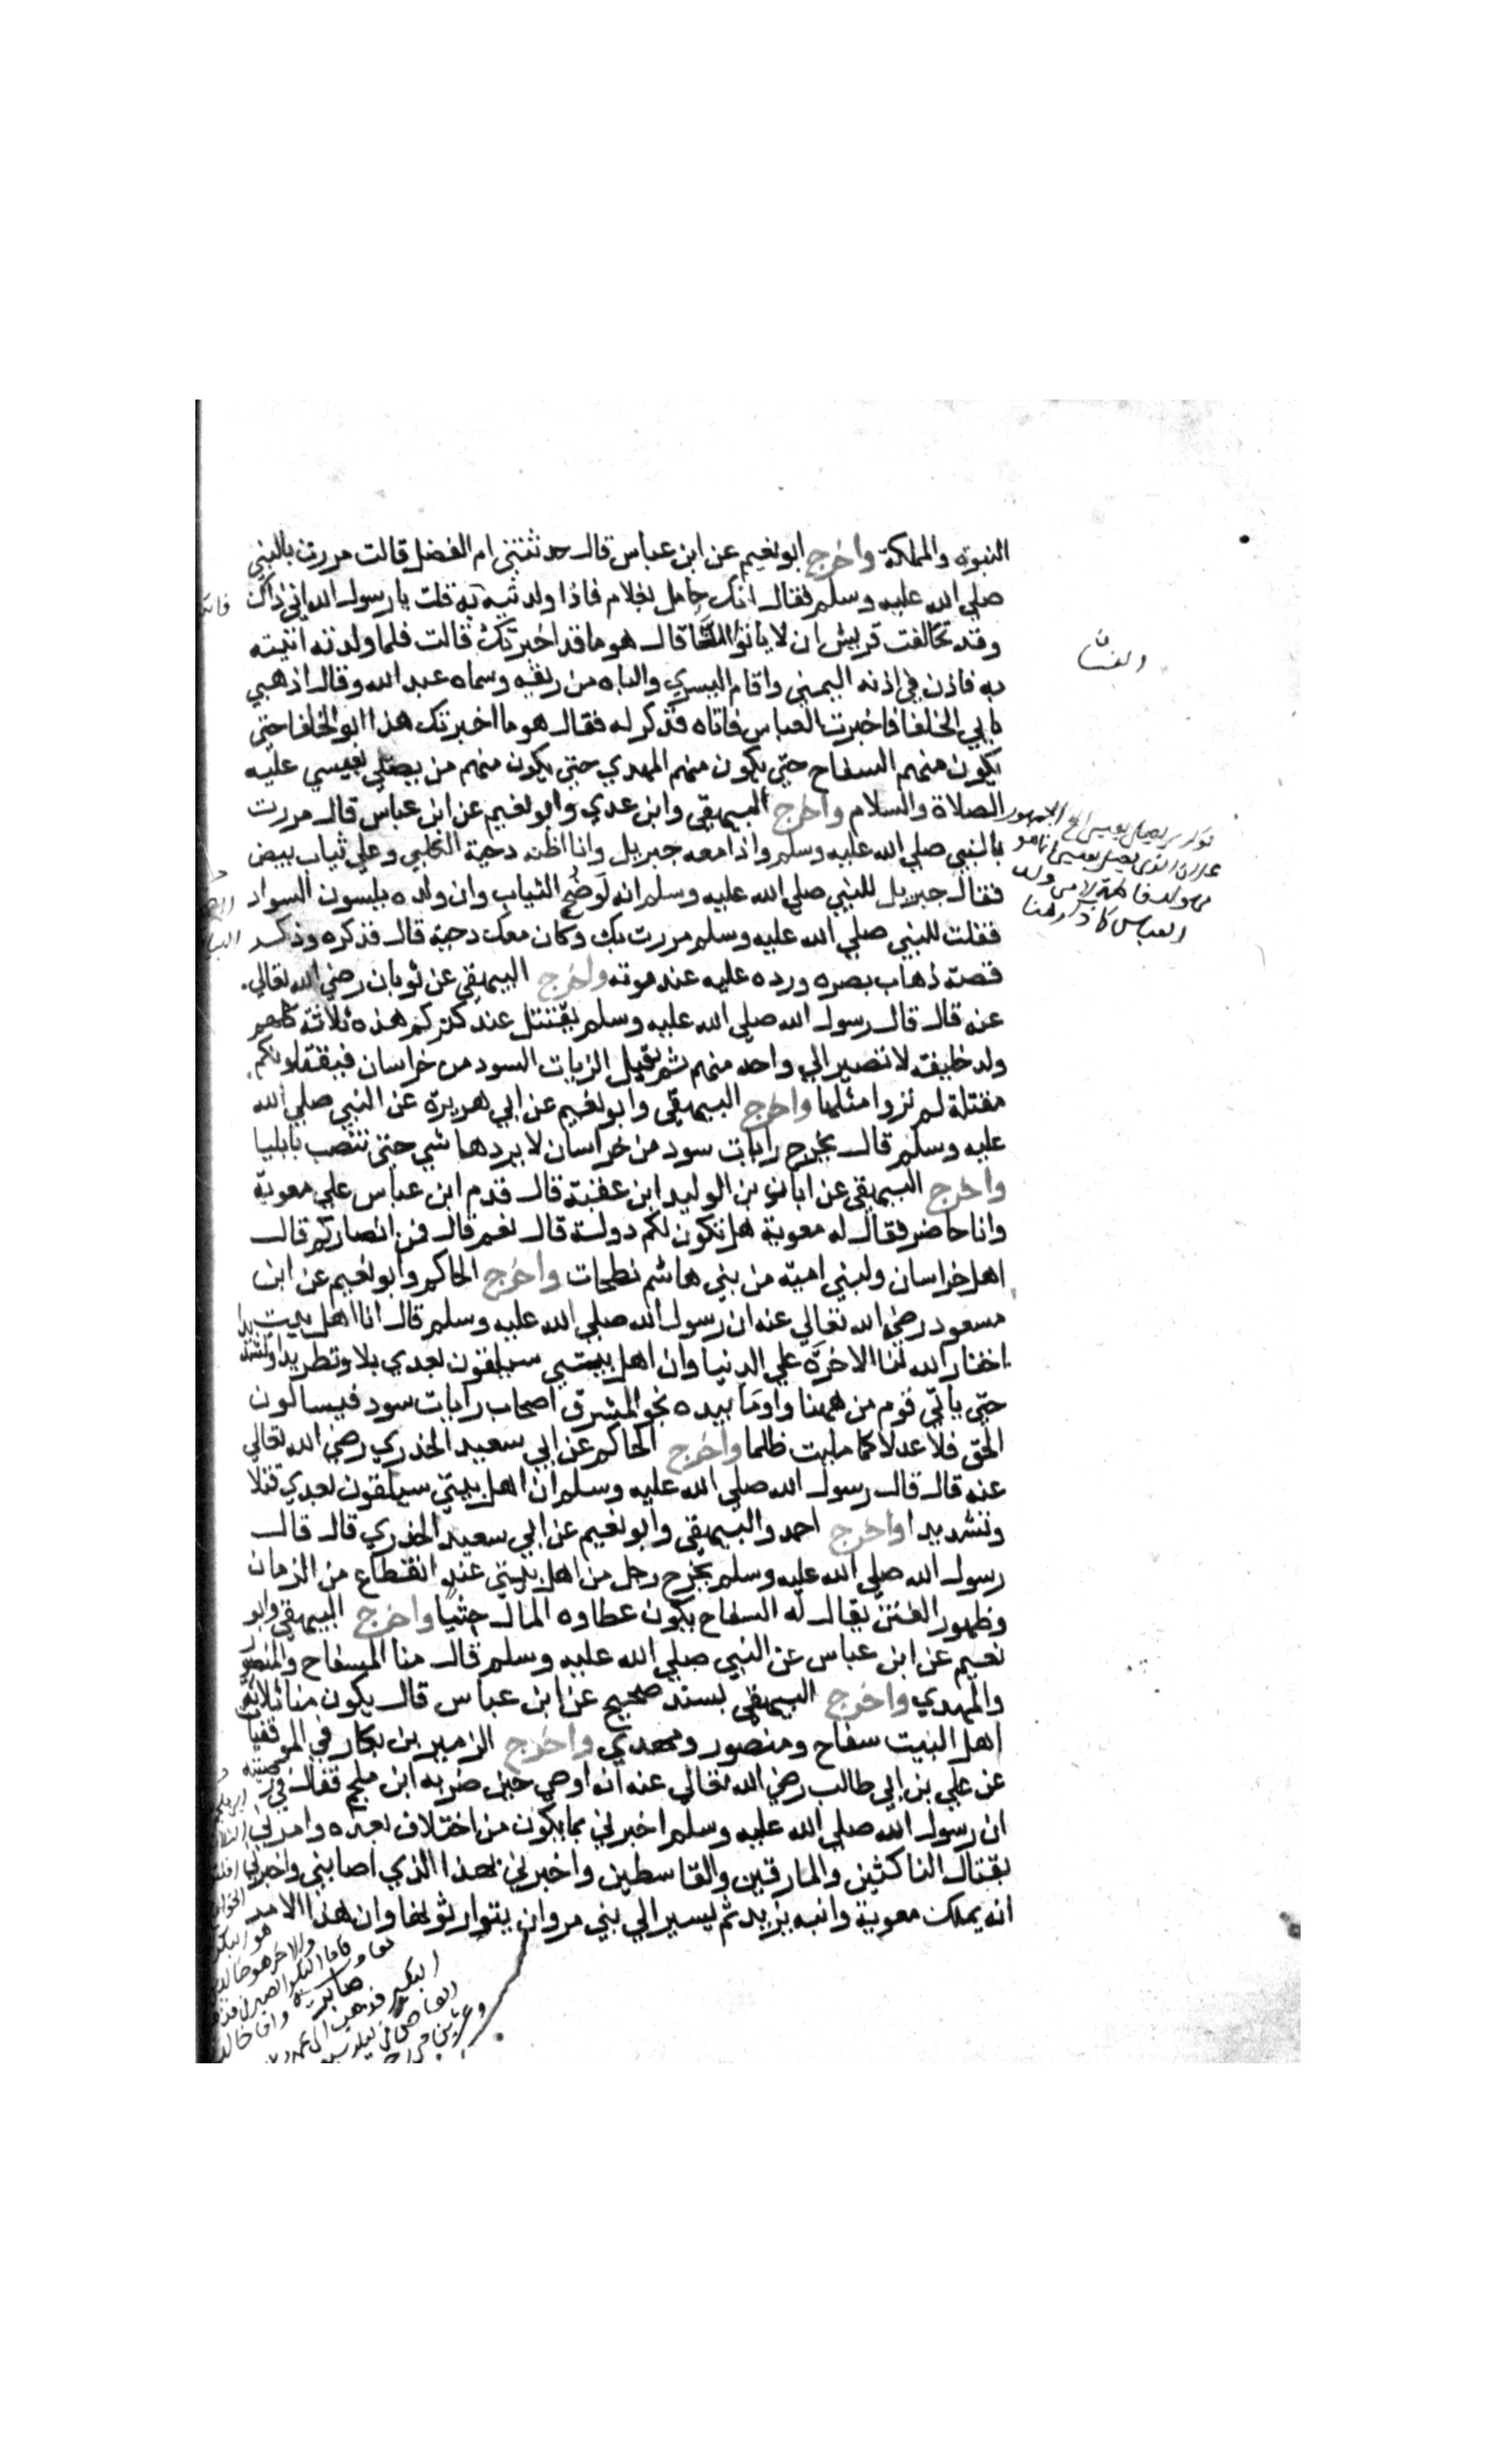 النبوة والمملكة واخرج ابو نعيم عن ابن عباس قال حدثتني ام الفضل قالت مررت بالنبي
صلي الله عليه وسلم فقال انك حامل بغلام فاذا ولدتيه قلت يا رسول الله اني ذاك
وقد تحالفت قريش ان لا ياتوا النسا قال هو ما قد اخبرتك قالت فلما ولدته اتيته
به فاذن في اذنه اليمني واقام اليسري والباه من ريقه وسماه عبد الله وقال اذهبي
بابي الخلفا فاخبرت العباس فاتاه فذكر له فقال هو ما اخبرتك هذا ابو الخلفا حتي
يكون منهم السفاح حتي يكون منهم المهدي حتي يكون منهم من يصلي بعيسي عليه
الصلاة والسلام واخرج البيهقي وابن عدي وابو نعيم عن ابن عباس قال مررت
بالنبي صلي الله عليه وسلم واذا معه جبريل وانا اظنه دحية الكلبي وعلي ثياب بيض
فقال جبريل للنبي صلي الله عليه وسلم انه لوضح الثياب وان ولده يلبسون السواد
فقلت للنبي صلي الله عليه وسلم مررت بك وكان معك دحية قال فذكره وذكر
قصة ذهاب بصره ورده عليه عند موته واخرج البيهقي عن ثوبان رضي الله تعالي
عنه قال قال رسول الله صلي الله عليه وسلم يقتتل عند كنزكم هذه ثلاثة كلهم
ولد خليفة لا تصير الي واحد منهم ثم تقبل الرايات السود من خراسان فيقتلونكم
مقتلة لم تروا مثلها واخرج البيهقي وابو نعيم عن ابي هريرة عن النبي صلي الله
عليه وسلم قال يخرج رايات سود من خراسان لا يردها شي حتي تنصب بايليا
واخرج البيهقي عن ابان بن الوليد ابن عقبة قال قدم ابن عباس علي معوية
وانا حاضر فقال له معوية هل تكون لكم دولة قال نعم قال فمن انصاركم قال
اهل خراسان ولبني امية من بني هاشم نطحات واخرج الحاكم وابو نعيم عن ابن
مسعود رضي الله تعالي عنه ان رسول الله صلي الله عليه وسلم قال انا اهل بيت
اختار الله لنا الاخرة علي الدنيا وان اهل بيتي سيلقون بعدي بلا وتطريدا وتشريدا
حتي ياتي قوم من ههنا واومأ بيده نحو المشرق اصحاب رايات سود فيسالون
الحق فلا عدلا كما ملئت ظلما واخرج الحاكم عن ابي سعيد الخدري رضي الله تعالي
عنه قال قال رسول الله صلي الله عليه وسلم ان اهل بيتي سيلقون بعدي قتلا
وتشديدا واخرج احمد والبيهقي وابو نعيم عن ابي سعيد الخدري قال قال
رسول الله صلي الله عليه وسلم يخرج رجل من اهل بيتي عند انقطاع من الزمان
وظهور الفتن يقال له السفاح يكون عطاوه المال حثيا واخرج البيهقي وابو
نعيم عن ابن عباس عن النبي صلي الله عليه وسلم قال منا السفاح والمنصور
والمهدي واخرج البيهقي بسند صحيح عن ابن عباس قال يكون منا ثلاثة
اهل البيت سفاح ومنصور ومهدي واخرج الزبير بن بكار في الموفقيات
عن علي بن ابي طالب رضي الله تعالي عنه انه اوصي حين ضربه ابن ملجم فقال في وصيته
ان رسول الله صلي الله عليه وسلم اخبرني بما يكون من اختلاف بعده وامرني
بقتال الناكثين والمارقين والقاسطين واخبرني بهذا الذي اصابني واخبرني
انه يملك معوية وابنه يزيد ثم يسير الي بني مروان يتوارثونها وان هذا الامر